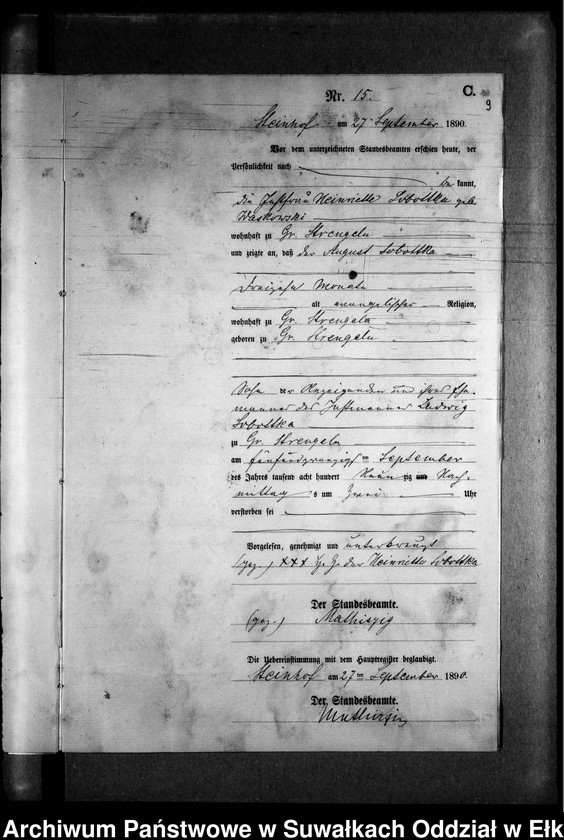 C.
9
Nr. 15.
Steinhof am 27 September 1890.
Vor dem unterzeichneten Standesbeamten erschien heute, der
Persönlichkeit nach
be kannt,
die Instfrau Heinriette Sobottka geb.
Waskowski
wohnhaft zu Gr. Strengeln
und zeigte an, daß der August Sobottka
dreizehn Monate
alt evangelischer Religion,
wohnhaft zu Gr. Strengeln
geboren zu Gr. Strengeln
Sohn der Anzeigenden und ihres Ehe-
mannes des Instmannes Ludwig
Sobottka
zu Gr. Strengeln
am fünfundzwanzigst= September
des Jahres tausend acht hundert Neunzig Nach-
mittags um zwei Uhr
verstorben sei
Vorgelesen, genehmigt und unterkreuzt
(gez.) XXX der Heinriette Sobottka
Der Standesbeamte.
(gez.) Mathiszig
Die Uebereinstimmung mit dem Hauptregister beglaubigt.
Steinhof am 27= September 1890.
Der Standesbeamte.
Mathiszig
Archiwum Państwowe w Suwałkach Oddział w Ełk